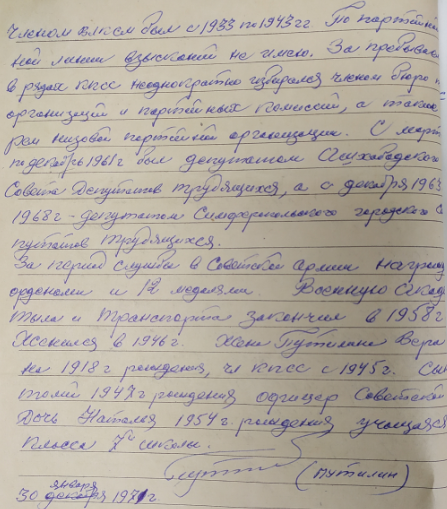 Членом ВЛКСМ был с 1933 по 1943 гг По партий
ной линии взысканий не имею. За пребыван
в рядах КПСС неоднократно избирался членом бюро
организаций и партийных комиссий, а также
рем низовой партийной организации. С марта
по декабрь 1961г был депутатом Ашхабадского
Совета Депутатов трудящихся, а с декабря 1963
1968г - депутатом Симферопольского городского С
путатов трудящихся.
За период службы в Советской Армии награж
орденами и 12 медалями. Военную Акад
тыла и транспорта закончил в 1958г
Женился в 1946г. Жена Путилина Вера
на 1918г рождения, чл КПСС с 1945г. Сын
толий 1947г рождения офицер Советской
Дочь Наталия 1954г. рождения учащаяся
класса 7й школы.
(Путилин)
января
30 декабря 1971г